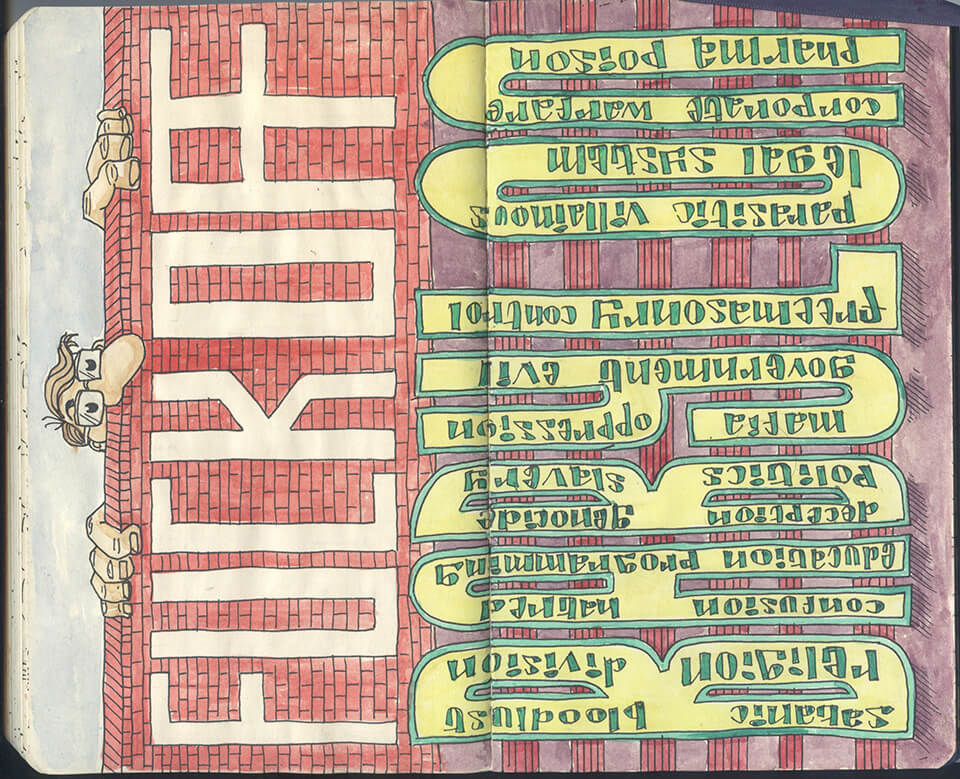 FUCK OFF
BABYLON
satanic bloodlust
religion division
confusion hatred
education programming
deception genocide
politics slavery
mafia oppression
government evil
freemasonry control
parasitic villainous
legal system
corporate warfare
pharma poison